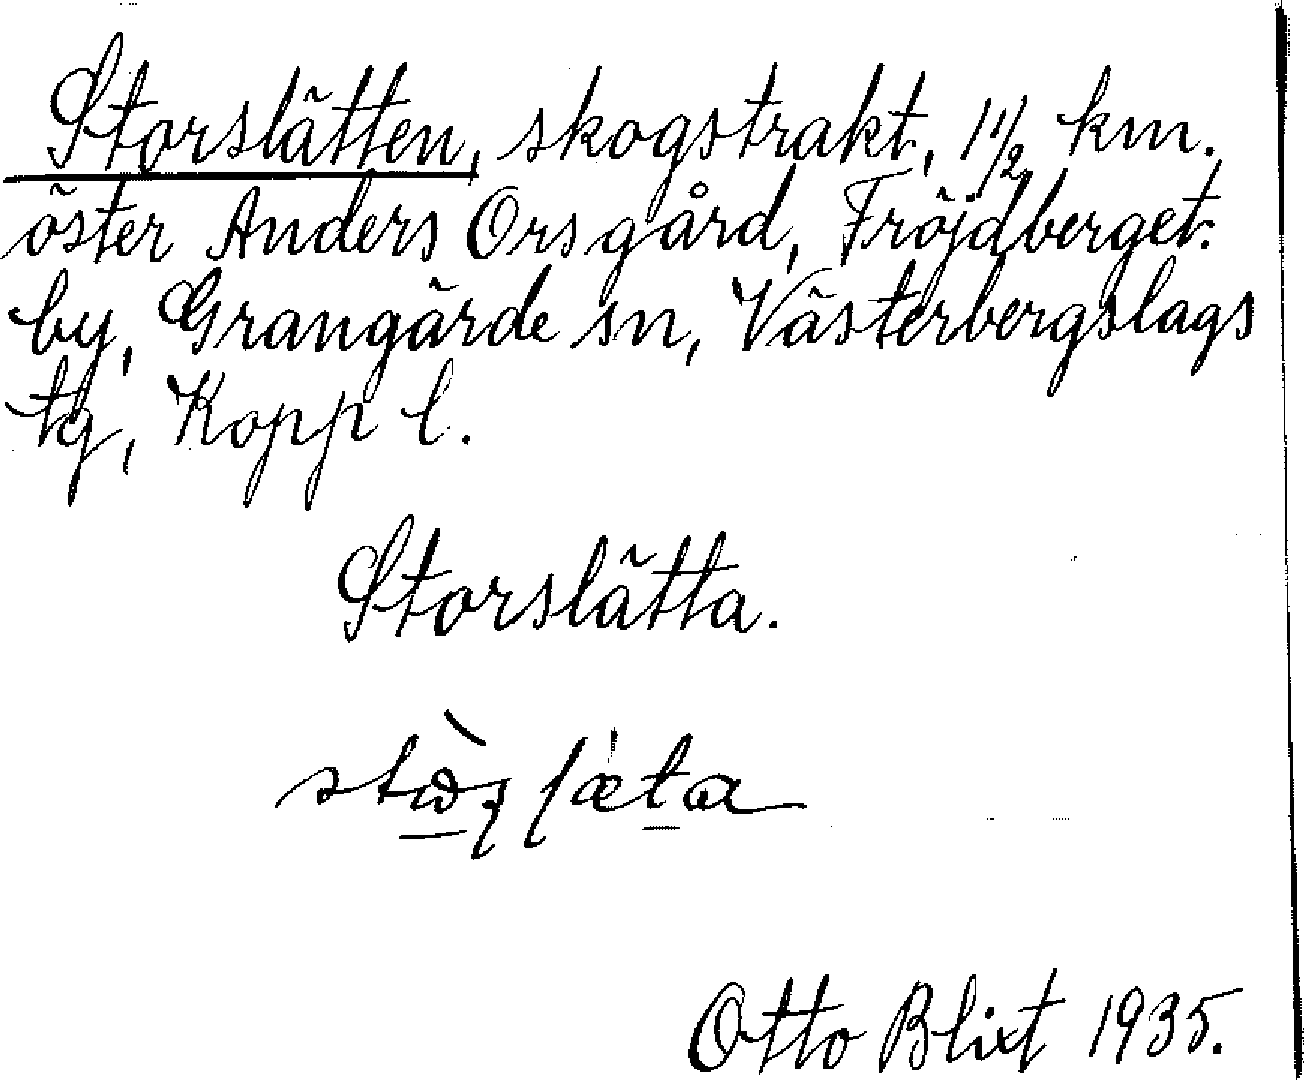 Storslätten, skogstrakt, 1 1/2 km.
öster Anders Orsgård, Fröjdberget:
by, Grangärde sn, Västerbergslags
tg, Kopp l.
Storslätta.
Otto Blixt 1935.